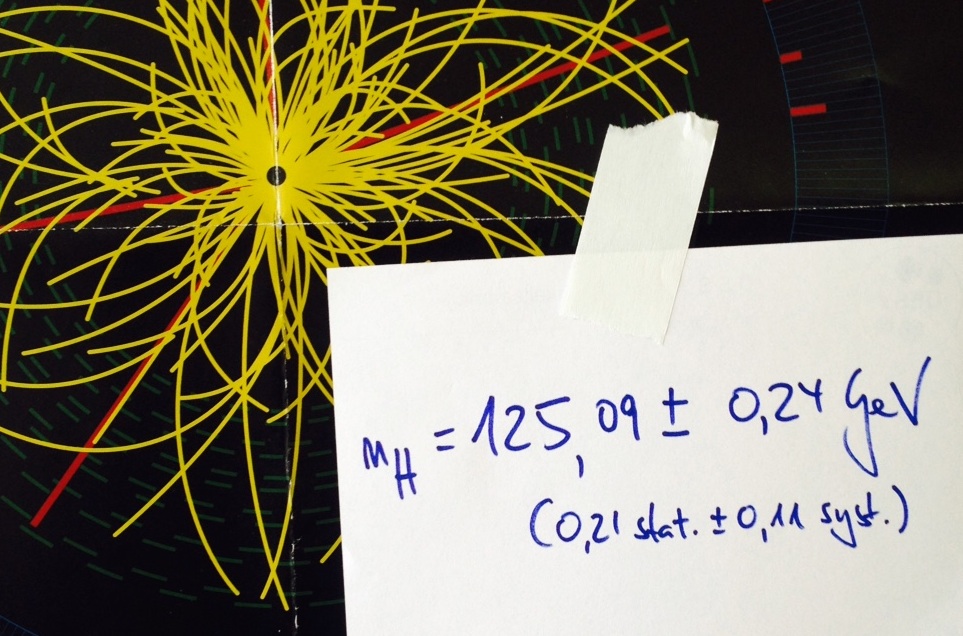 mH = 125,09 ± 0,24 GeV
(0,21 stat. ± 0,11 syst.)